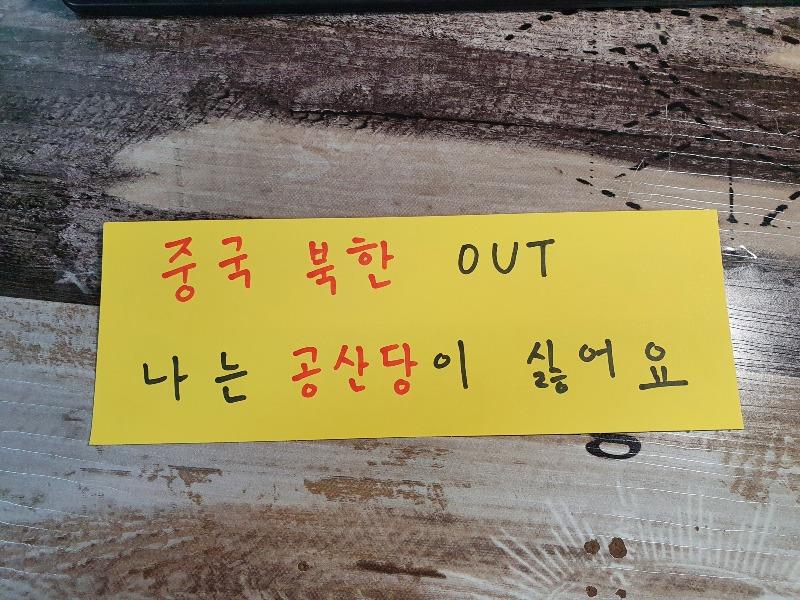 중국 북한 OUT
나는 공산당이 싫어요